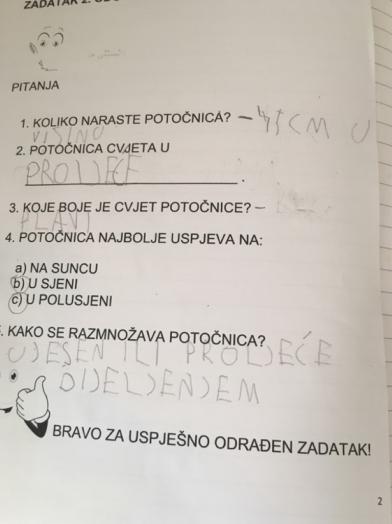 PITANJA
1. KOLIKO NARASTE POTOČNICA? – 45 CM U
VISINU
2. POTOČNICA CVJETA U
PROLJEĆE.
3. KOJE BOJE JE CVJET POTOČNICE? –
PLAVI
4. POTOČNICA NAJBOLJE USPJEVA NA:
a) NA SUNCU
b) U SJENI
c) U POLUSJENI
. KAKO SE RAZMNOŽAVA POTOČNICA?
UJESEN ILI PROLJEĆE
DIJELJENJEM
BRAVO ZA USPJEŠNO ODRAĐEN ZADATAK!
2